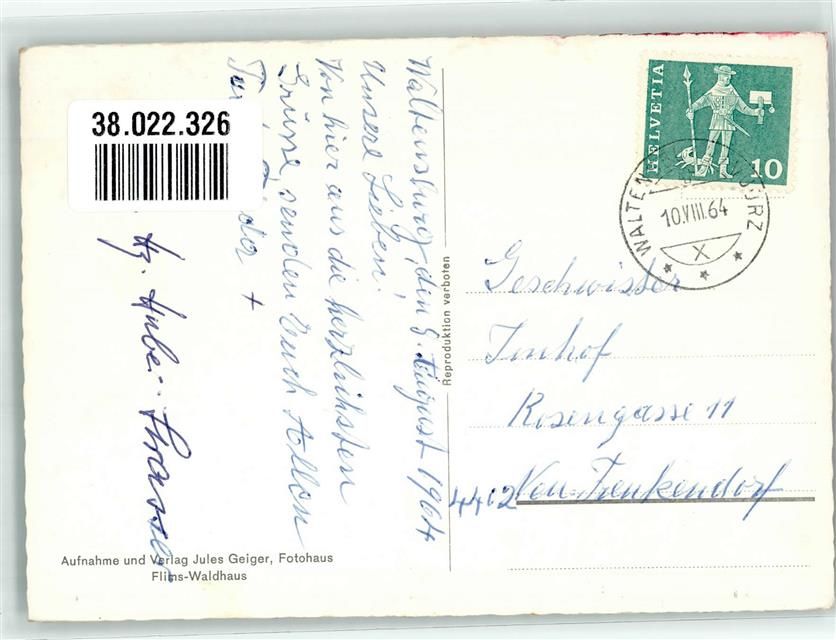 38.022.326
Waltensburg, den 8. August 1964
Unsere Lieben!
Von hier aus die herzlichsten
Grüsse senden Euch Allen
+
Huber-Strasser
Aufnahme und Verlag Jules Geiger, Fotohaus
Flims-Waldhaus
Reproduktion verboten
HELVETIA
10
WALTEN
10.VIII.64
X
Geschwister
Imhof
Rosengasse 11
4402 Neu-Frenkendorf